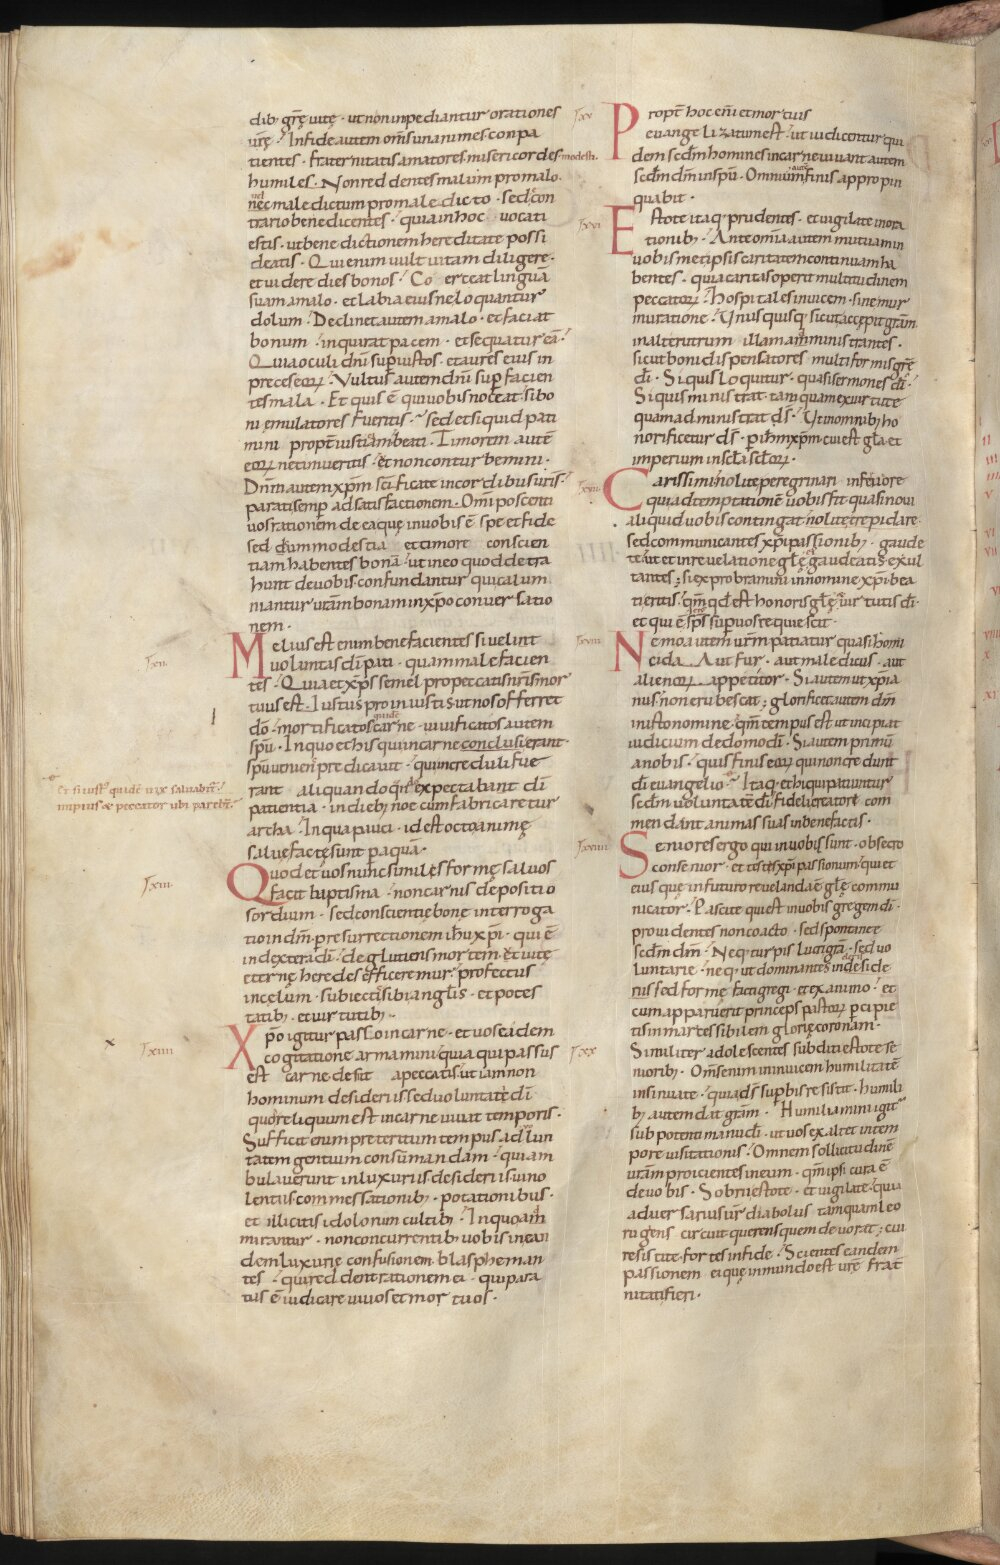 dib; grę uitę · ut non inpediantur orationes
urę · In fide autem om̅s unanimes conpa
tientes · fraternitatis amatores misericordes modesti·
humiles · Non reddentes malum pro malo·
nec maledictum pro maledicto · sed con
trario benedicentes · quia in hoc uocati
estis · ut benedictionem hereditate possi
deatis · Qui enim uult uitam diligere·
et uidere dies bonos · Co erceat linguā
suam a malo · et labia eius ne loquantur
dolum · Declinet autem a malo · et faciat
bonum · inquirat pacem · et sequatur eā·
Quia oculi dn̅i sup iustos · et aures eius in
preces eoꝝ · Vultus autem dn̅i sup facien
tes mala · Et quis ē qui uobis noceat si bo
ni emulatores fueritis · sed et si quid pati
mini propt̅ iustitiam beati · Timorem autē
eoꝝ ne timueritis · et non conturbemini·
Dn̅m autem xp̅m sc̅ificate in cordibus uris·
parati semp ad satisfactionem · Omi̅ poscenti
uos rationem de ea quę in uobis ē spe et fide
sed cum modestia et timore conscien
tiam habentes bonā · ut in eo quod detra
hunt de uobis confundantur qui calum
niantur uram bonam in xp̅o conuersatio
nem ·
Γxii· Melius est enim benefacientes si uelint
uoluntas di̅ pati · quam malefacien
tes · Quia et xp̅s semel pro peccatis nris mor
tuus est · Iustus pro iniustis ut nos offerret
dō · mortificatos quidē carne · uiuificatos autem
spu̅ · In quo et his qui in carne conclusi erant·
spu̅ ueniens predicauit · qui increduli fue
rant aliquando qn̅ expectabant di̅
patientia · in dieb; noe cum fabricaretur
archa · In qua pauci · id est octo animę
saluę factę sunt p aquā·
Et si iust' quidē uix saluabit̅·
impius & peccator ubi parebt̅·
Γxiii· Quod et uos nunc similes formę saluos
facit baptisma · non carnis depositio
sordium · sed conscientię bonę interroga
tio in dm̅ · p resurrectionem ih̅u xp̅i · qui ē
in dextera di̅ · deglutiens mortem · et uitę
eternę heredes efficeremur · profectus
in cęlum · subiectis sibi angl̅is · et potes
tatib; · et uirtutib; ·
Γxiiii Xpō igitur passo in carne · et uos eadem
cogitatione armamini quia qui passus
est carne desiit a peccatis ut iam non
hominum desideriis sed uoluntate di̅
quod reliquum est in carne uiuat temporis·
Sufficit enim preteritum tempus ad uolun
tatem gentium consumandam · qui am
bulauerunt in luxuriis desideriis uino
lentiis commessationib; · potationibus·
et illicitis idolorum cultib; · In quo am
mirantur · non concurrentib; uobis in ean
dem luxurię confusionem blaspheman
tes · qui reddent rationem ei · qui para
tus ē iudicare uiuos et mortuos·
Γxv Propt̅ hoc eni̅ et mortuis
euangelizatum est · ut iudicentur qui
dem scd̅m homines in carne uiuant autem
scd̅m dm̅ in spu̅ · Omnium autē finis appropin
quabit ·
Γxvi Estote itaq· prudentes · et uigilate in ora
tionib; · Ante omnia autem mutuam in
uobismetipsis caritatem continuam ha
bentes · quia caritas operit multitudinem
peccatoꝝ · Hospitales inuicem · sine mur
muratione · Unusquisq· sicut accepit gram·
in alterutrum illam amministrantes·
sicut boni dispensatores multiformis grę
di̅ · Si quis loquitur · quasi sermones di̅·
Si quis ministrat · tamquam ex uirtute
quam administrat ds̅ · Ut in omnib; ho
norificetur ds̅ · p ih̅m xp̅m cui est gl̅a et
imperium in scl̅a scl̅oꝝ ·
Γxvii Carissimi nolite peregrinari in feruore
qui ad temptationē uobis fit quasi noui
aliquid uobis contingat nolite trepidare·
sed communicantes xp̅i passionib; · gaude
te · ut et in reuelatione gl̅ę gaudeatis exul
tantes ; si exprobramini in nomine xp̅i bea
ti eritis · qm̅ qd est honoris gl̅ę uirtutis di̅·
et qui ē sps̅ sup uos requiescit ·
Γxviii Nemo autem urm̅ patiatur quasi homi
cida Aut fur · aut maledicus · aut
alienoꝝ appetitor · Si autem ut xp̅ia
nus non erubescat ; glorificet autem dm̅
in isto nomine · qm̅ tempus est ut incipiat
iudicium de domo di̅ · Si autem primū
a nobis · quis finis eoꝝ qui non credunt
di̅ euangelio · Itaq· et hi qui patiuntur
scd̅m uoluntatē di̅ · fideli creatore com
mendant animas suas in benefactis·
Γxviiii Seniores ergo qui in uobis sunt · obsecro
consenior · et testis xp̅i passionum qui et
eius quę in futuro reuelanda ē gl̅ę commu
nicator · Pascite qui est in uobis gregem di̅·
prouidentes non coacto · sed spontanee
scd̅m dm̅ · Neq· turpis lucri gra̅ · sed uo
luntarie · neq· ut dominantes in deside
riis sed formę facti gregi · et ex animo · et
cum apparuerit princeps pastoꝝ pcipie
tis inmarcessibilem glorię coronam·
Γxx Similiter adolescentes subditi estote se
niorib; · Oms̅ enim inuicem humilitatē
insinuate · quia ds̅ supbis resistit · humili
b; autem dat gram̅ · Humiliamini igit̅
sub potenti manu di̅ · ut uos exaltet in tem
pore uisitationis · Omnem sollicitudinē
uram̅ proicientes in eum · qm̅ ipsi cura ē
de uobis · Sobrii estote · et uigilate · quia
aduersarius ur̅ diabolus tamquam leo
rugens circuit querens quem deuorat ; cui
resistite fortes in fide · Scientes eandem
passionem ei quę in mundo est urę frat̅
nitati fieri ·